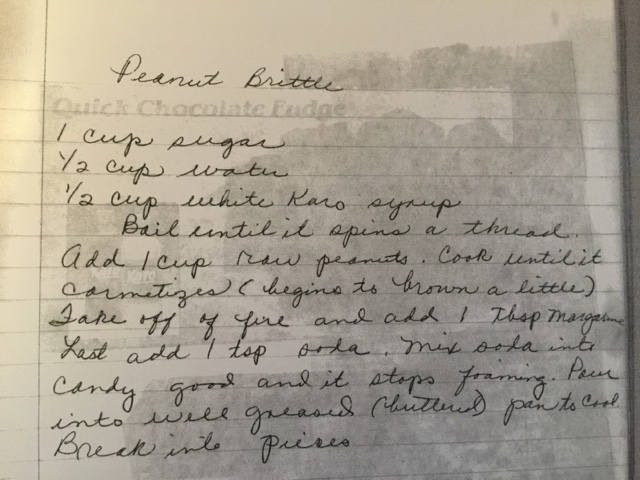 Peanut Brittle
Quick Chocolate Fudge
1 cup sugar
1/2 cup water
1/2 cup white Karo syrup
Boil until it spins a thread.
Add 1 cup raw peanuts. Cook until it
carmetizes (begins to brown a little)
Take off of fire and add 1 Tbsp margarine
Last add 1 tsp soda. Mix soda into
candy good and it stops foaming. Pour
into well greased (buttered) pan to cool.
Break into pieces